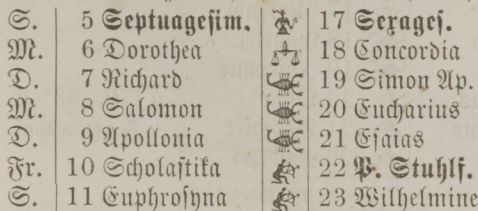 S. 5 Septuagesim. 17 Sexages.
M. 6 Dorothea 18 Concordia
D. 7 Richard 19 Simon Ap.
M. 8 Salomon 20 Eucharius
D. 9 Apollonia 21 Esaias
Fr. 10 Scholastika 22 P. Stuhlf.
S. 11 Euphrosyna 23 Wilhelmine